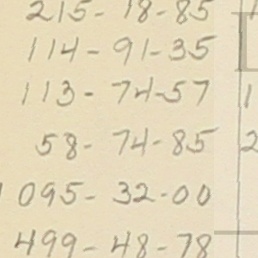 215-18-85
114-91-35
113-74-57
58-74-85
095-32-00
499-48-78